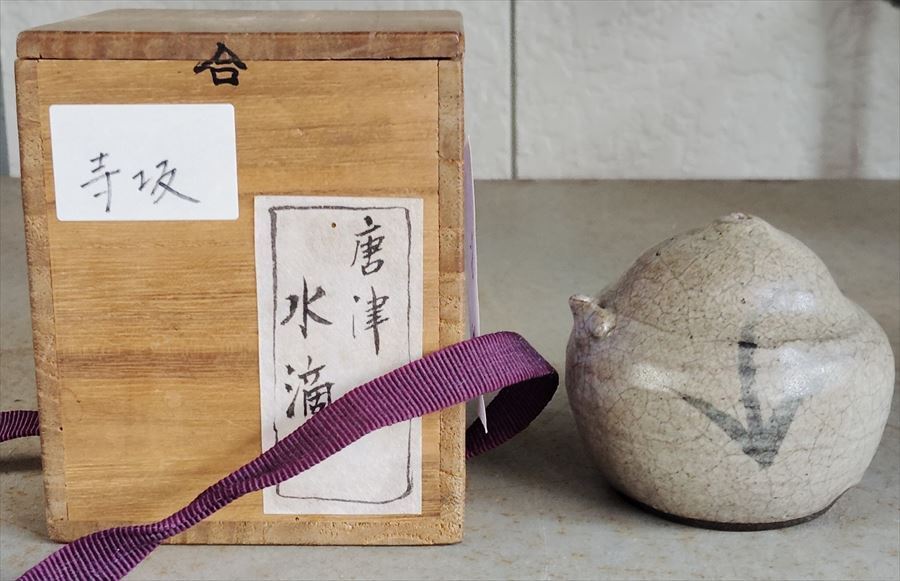 合
寺坂
唐津
水滴